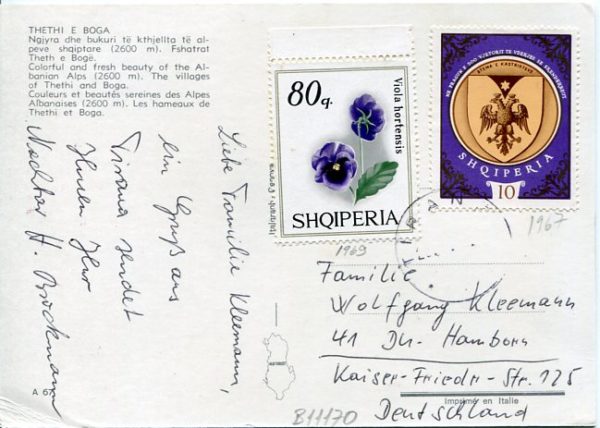 THETHI E BOGA
Ngjyra dhe bukuri të kthjellta të al-
peve shqiptare (2600 m). Fshatrat
Theth e Bogë.
Colorful and fresh beauty of the Al-
banian Alps (2600 m). The villages
of Thethi and Boga.
Couleurs et beautés sereines des Alpes
Albanaises (2600 m). Les hameaux de
Thethi et Boga.
Liebe Familie Kleemann,
ein Gruß aus
Tirana sendet
Ihnen Ihr
Nachbar H. Brockmann
A 67
80q.
Viola hortensis
SHQIPERIA
1969
STEMA E KASTRIOTEVE
SHQIPERIA
10
1967
TIRANA
Familie
Wolfgang Kleemann
41 Du.- Hamborn
Kaiser-Friedr.-Str. 125
Deutschland
Imprimé en Italie
B11170